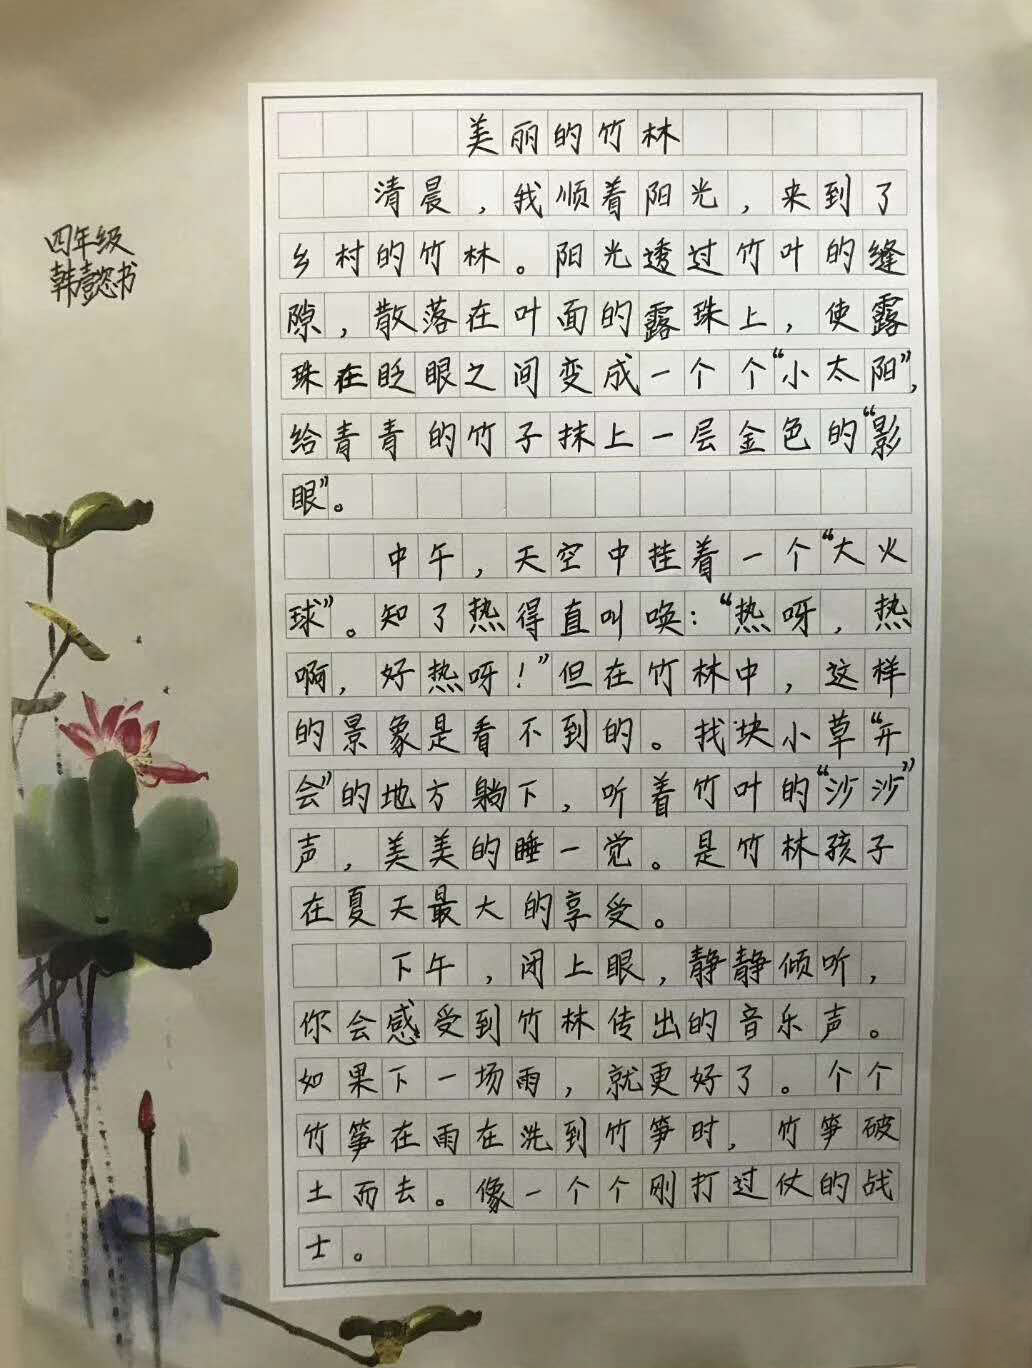 美丽的竹林
清晨，我顺着阳光，来到了
乡村的竹林。阳光透过竹叶的缝
隙，散落在叶面的露珠上，使露
珠在眨眼之间变成一个个“小太阳”，
给青青的竹子抹上一层金色的“影
眼”。
中午，天空中挂着一个“大火
球”。知了热得直叫唤：“热呀，热
啊，好热呀！”但在竹林中，这样
的景象是看不到的。找块小草“开
会”的地方躺下，听着竹叶的“沙沙”
声，美美的睡一觉。是竹林孩子
在夏天最大的享受。
下午，闭上眼，静静倾听，
你会感受到竹林传出的音乐声。
如果下一场雨，就更好了。个个
竹笋在雨在洗到竹笋时，竹笋破
土而去。像一个个刚打过仗的战
士。
四年级
韩懿书